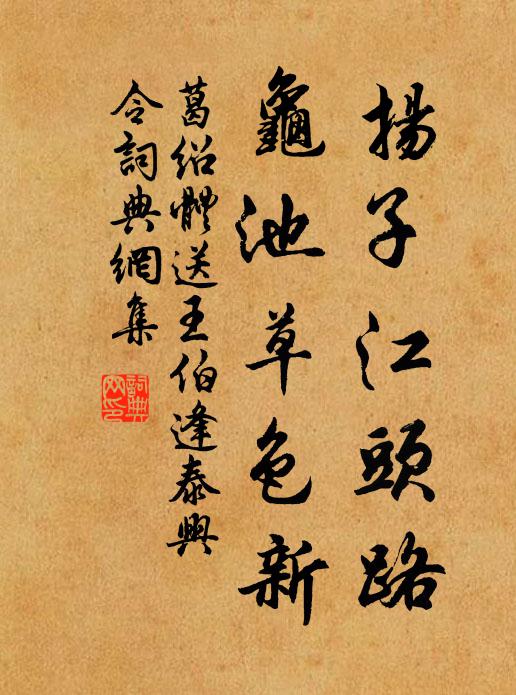 揚子江頭路
龜池草色新
葛紹體送王伯逢泰興
令詞典網集
詞典
网印